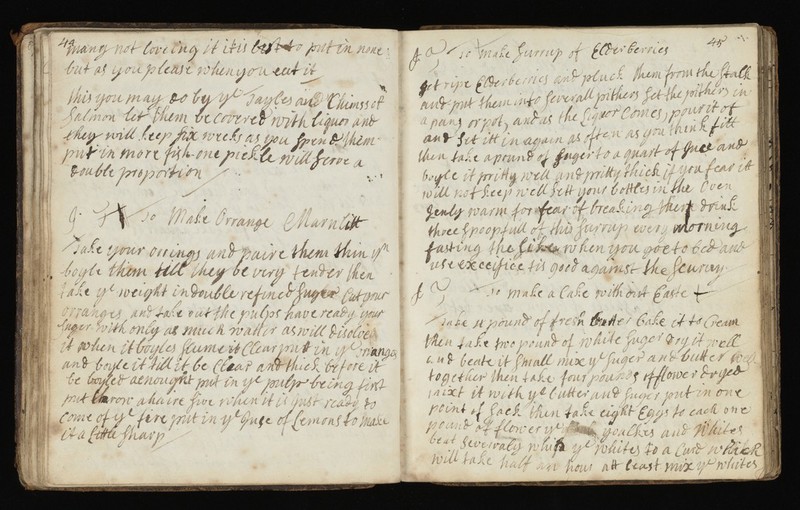 many not loveing it it is best to put in none
but as you please when you eat it
this you may do by yᵉ Tayles and Chinss of
Salmon let them be covered with liquor and
they will keep six weeks as you spend them
put in more fish one pickle will serve a
double proportion
To Make Orrange Marmlitt
Take your orringes and paire them thin yⁿ
boyle them till they be very tender then
take yᵉ weight in double refined suger Cut your
orranges and take out the pulps have ready your
suger with only as much watter as will disolve
it when it boyles skume it Clear put in yᵉ orranges
and boyle it till it be Clear and thick before it
be boyled aenought put in yᵉ pulps being first
put throw a haire sive when it is just ready to
come of yᵉ fire put in yᵉ Juse of Lemons to make
it a little sharp
45
To make surrup of Elderberries
Get ripe Elderberries and pluck them from the stalk
and put them into severall pithers set the pithers in
a pans or pot, and as the liquor Comes, pour it of
and set itt in again as often as you think fitt
then take a pound of suger to a quart of Juce and
boyle it pritty well and pritty thick if you fear itt
will not keep well sett your bottles in the Oven
Jenly warm for fear of breaking there drink
three spoopfull of this surrup every morning
fasting the like when you goe to bed and
use excersice tis good against the scurvay
To make a Cake without Easte
Take a pound of fresh butter bake it to Cream
then take two pound of white suger dry it well
and beate it small mix yᵉ suger and butter well
together then take four pounds of flower dryed
mixt it with yᵉ butter and suger put in one
point of sack then take eight Eggs to each one
pound of flower yᵉ yoalkes and Whites
beat severaly whip yᵉ whites to a Curd which
will take half an hour att least mix yᵉ whites